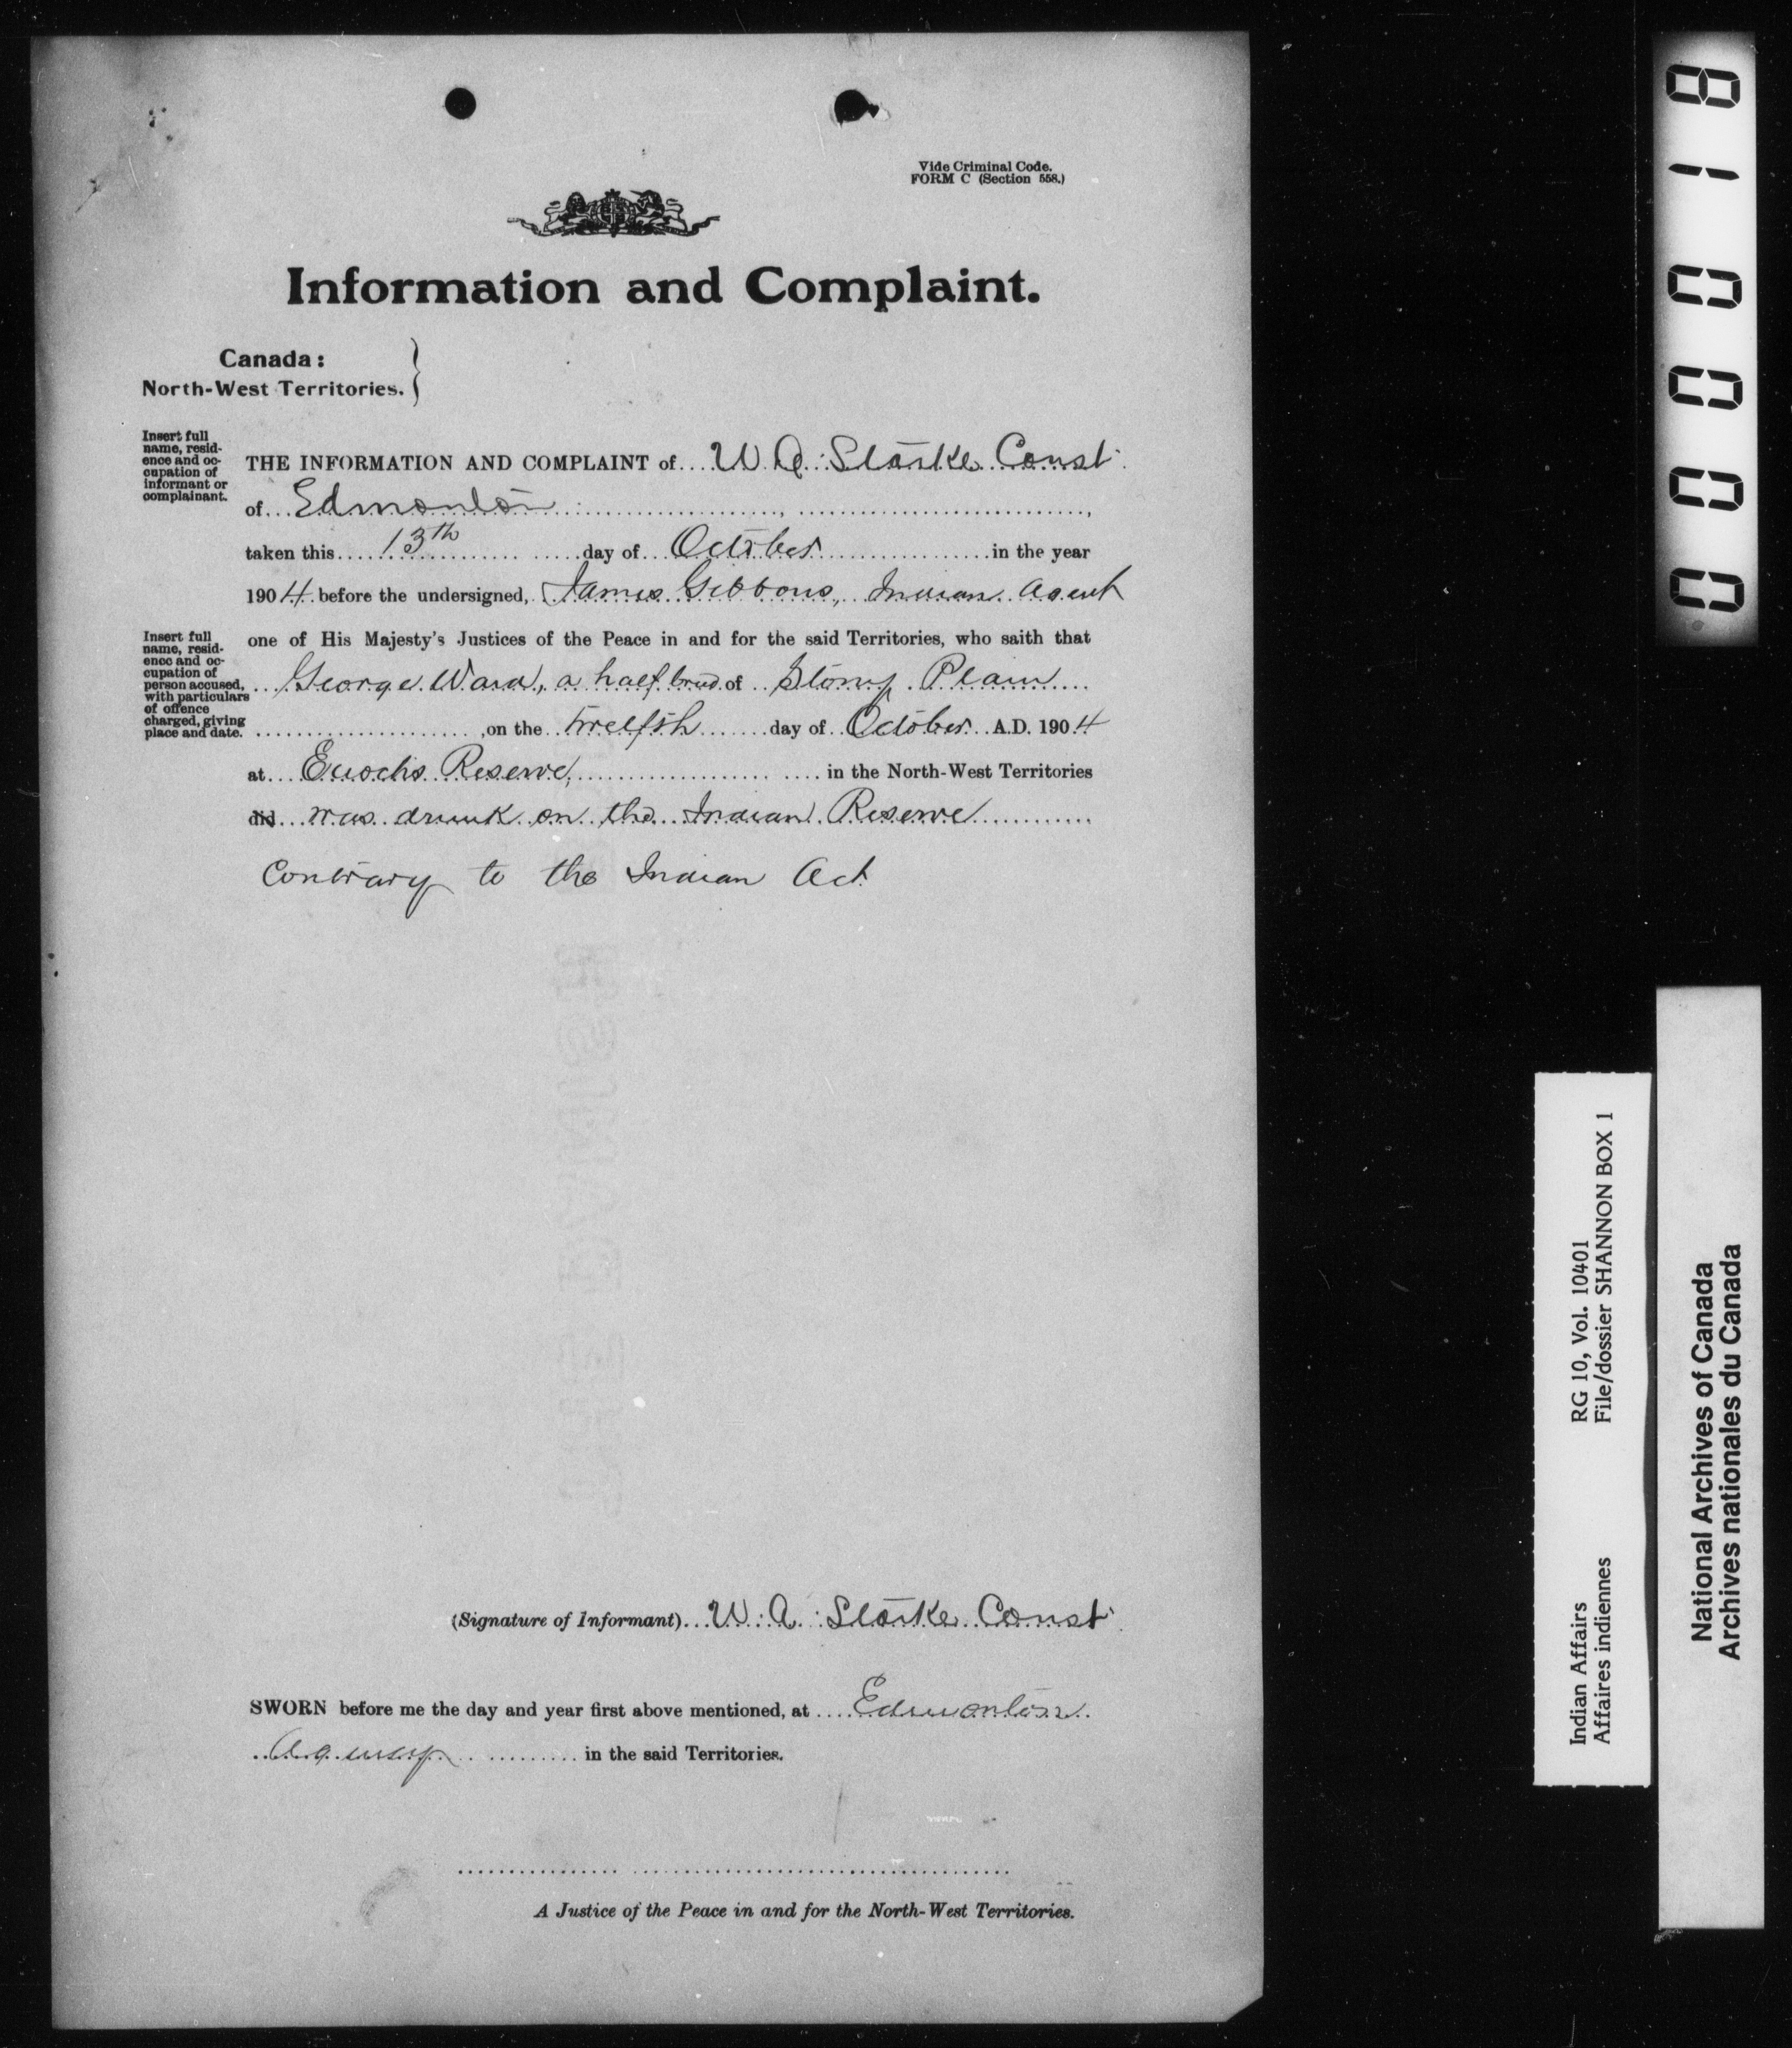 Vide Criminal Code.
FORM C (Section 558.)
Information and Complaint.
Canada:
North-West Territories.
Insert full
name, resid-
ence and oc-
cupation of
informant or
complainant.
THE INFORMATION AND COMPLAINT of W. A. Starke Const.
of Edmonton
taken this 13th day of October in the year
1904 before the undersigned, James Gibbons, Indian Agent
Insert full
name, resid-
ence and oc-
cupation of
person accused,
with particulars
of offence
charged, giving
place and date.
one of His Majesty's Justices of the Peace in and for the said Territories, who saith that
George Ward, a half breed of Stony Plain
, on the twelfth day of October A.D. 1904
at Enochs Reserve, in the North-West Territories
did was drunk on the Indian Reserve
Contrary to the Indian Act
(Signature of Informant) W. A. Starke Const.
SWORN before me the day and year first above mentioned, at Edmonton
Agency in the said Territories.
A Justice of the Peace in and for the North-West Territories.
000018
Indian Affairs RG 10, Vol. 10401
Affaires indiennes File/dossier SHANNON BOX 1
National Archives of Canada
Archives nationales du Canada